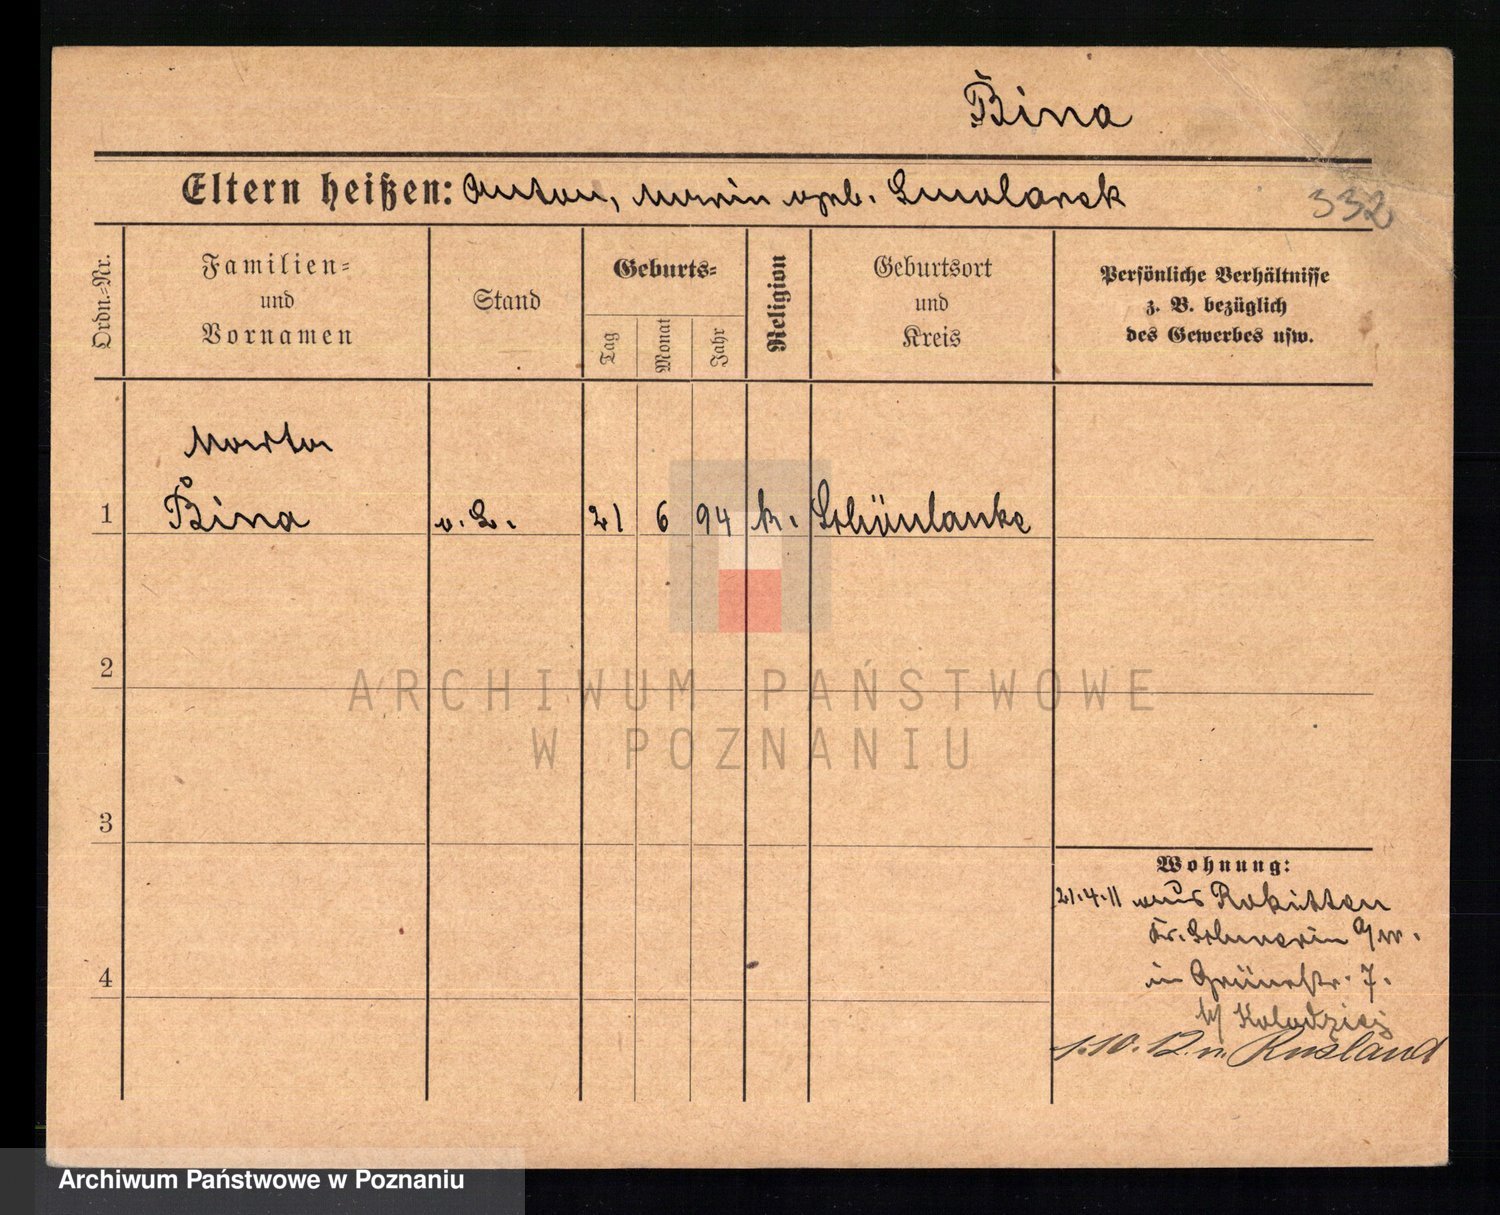 Bina
Eltern heißen: Anton, Maria geb. Smolarek
332
Ordn.-Nr.
Familien-
und
Vornamen
Stand
Geburts-
Tag
Monat
Jahr
Religion
Geburtsort
und
Kreis
Persönliche Verhältnisse
z. B. bezüglich
des Gewerbes usw.
Marta
1 Bina 21 6 94 k. Schönlanke
2
3
4
Wohnung:
21.4.11 aus Rokitten
Kr. Schwerin a/W.
in Grünestr. 7.
b/ Kolodziej
1.10.12. n. Rußland
ARCHIWUM PAŃSTWOWE
W POZNANIU
Archiwum Państwowe w Poznaniu